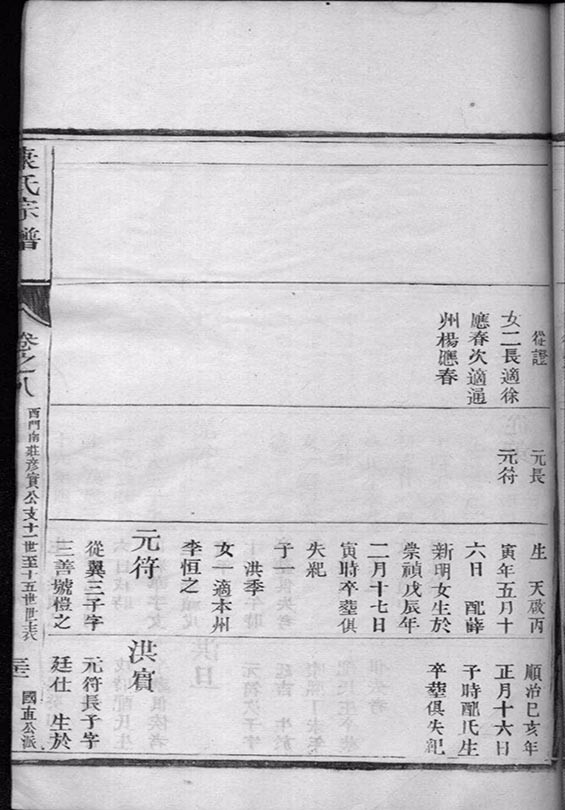 從證
女二長適徐
應春次適通
州楊應春
元長
元符
生 天啟丙
寅年五月十
六日 配薛
新明女生於
崇禎戊辰年
二月十七日
寅時卒塟俱
失紀
子一
洪季
女一適本州
李恒之
元符
從翼三子字
三善號之
順治己亥年
正月十六日
子時配氏生
卒塟俱失紀
洪賓
元符長子字
廷仕 生於
氏宗譜
卷之八
西門南莊彥賓公支十一世至十五世世表
國直公派